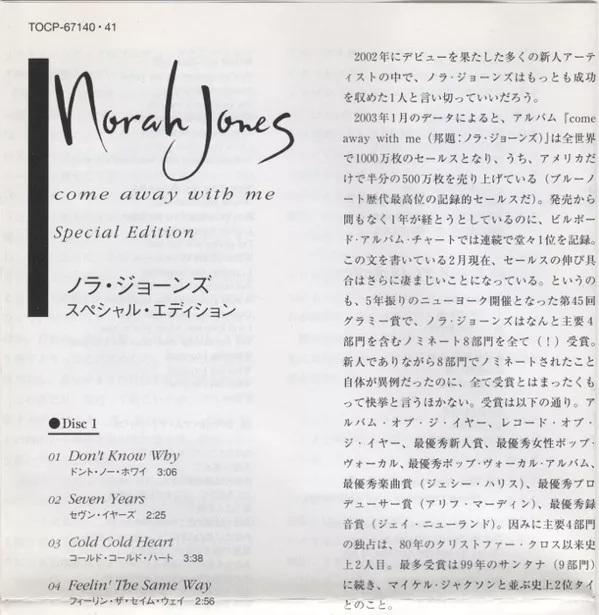 TOCP-67140・41
Norah Jones
come away with me
Special Edition
ノラ・ジョーンズ
スペシャル・エディション
●Disc 1
01 Don't Know Why
ドント・ノー・ホワイ 3:06
02 Seven Years
セヴン・イヤーズ 2:25
03 Cold Cold Heart
コールド・コールド・ハート 3:38
04 Feelin' The Same Way
フィーリン・ザ・セイム・ウェイ 2:56
2002年にデビューを果たした多くの新人アーテ
ィストの中で、ノラ・ジョーンズはもっとも成功
を収めた1人と言い切っていいだろう。
2003年1月のデータによると、アルバム『come
away with me（邦題：ノラ・ジョーンズ）』は全世界
で1000万枚のセールスとなり、うち、アメリカだ
けで半分の500万枚を売り上げている（ブルーノ
ート歴代最高位の記録的セールスだ）。発売から
間もなく1年が経とうとしているのに、ビルボー
ド・アルバム・チャートでは連続で堂々1位を記録。
この文を書いている2月現在、セールスの伸び具
合はさらに凄まじいことになっている。というの
も、5年振りのニューヨーク開催となった第45回
グラミー賞で、ノラ・ジョーンズはなんと主要4
部門を含むノミネート8部門を全て（！）受賞。
新人でありながら8部門でノミネートされたこと
自体が異例だったのに、全て受賞とはまったくも
って快挙と言うほかない。受賞は以下の通り。ア
ルバム・オブ・ジ・イヤー、レコード・オブ・
ジ・イヤー、最優秀新人賞、最優秀女性ポップ・
ヴォーカル、最優秀ポップ・ヴォーカル・アルバム、
最優秀楽曲賞（ジェシー・ハリス）、最優秀プロ
デューサー賞（アリフ・マーディン）、最優秀録
音賞（ジェイ・ニューランド）。因みに主要4部門
の独占は、80年のクリストファー・クロス以来史
上2人目。最多受賞は99年のサンタナ（9部門）
に続き、マイケル・ジャクソンと並ぶ史上2位タイ
とのこと。